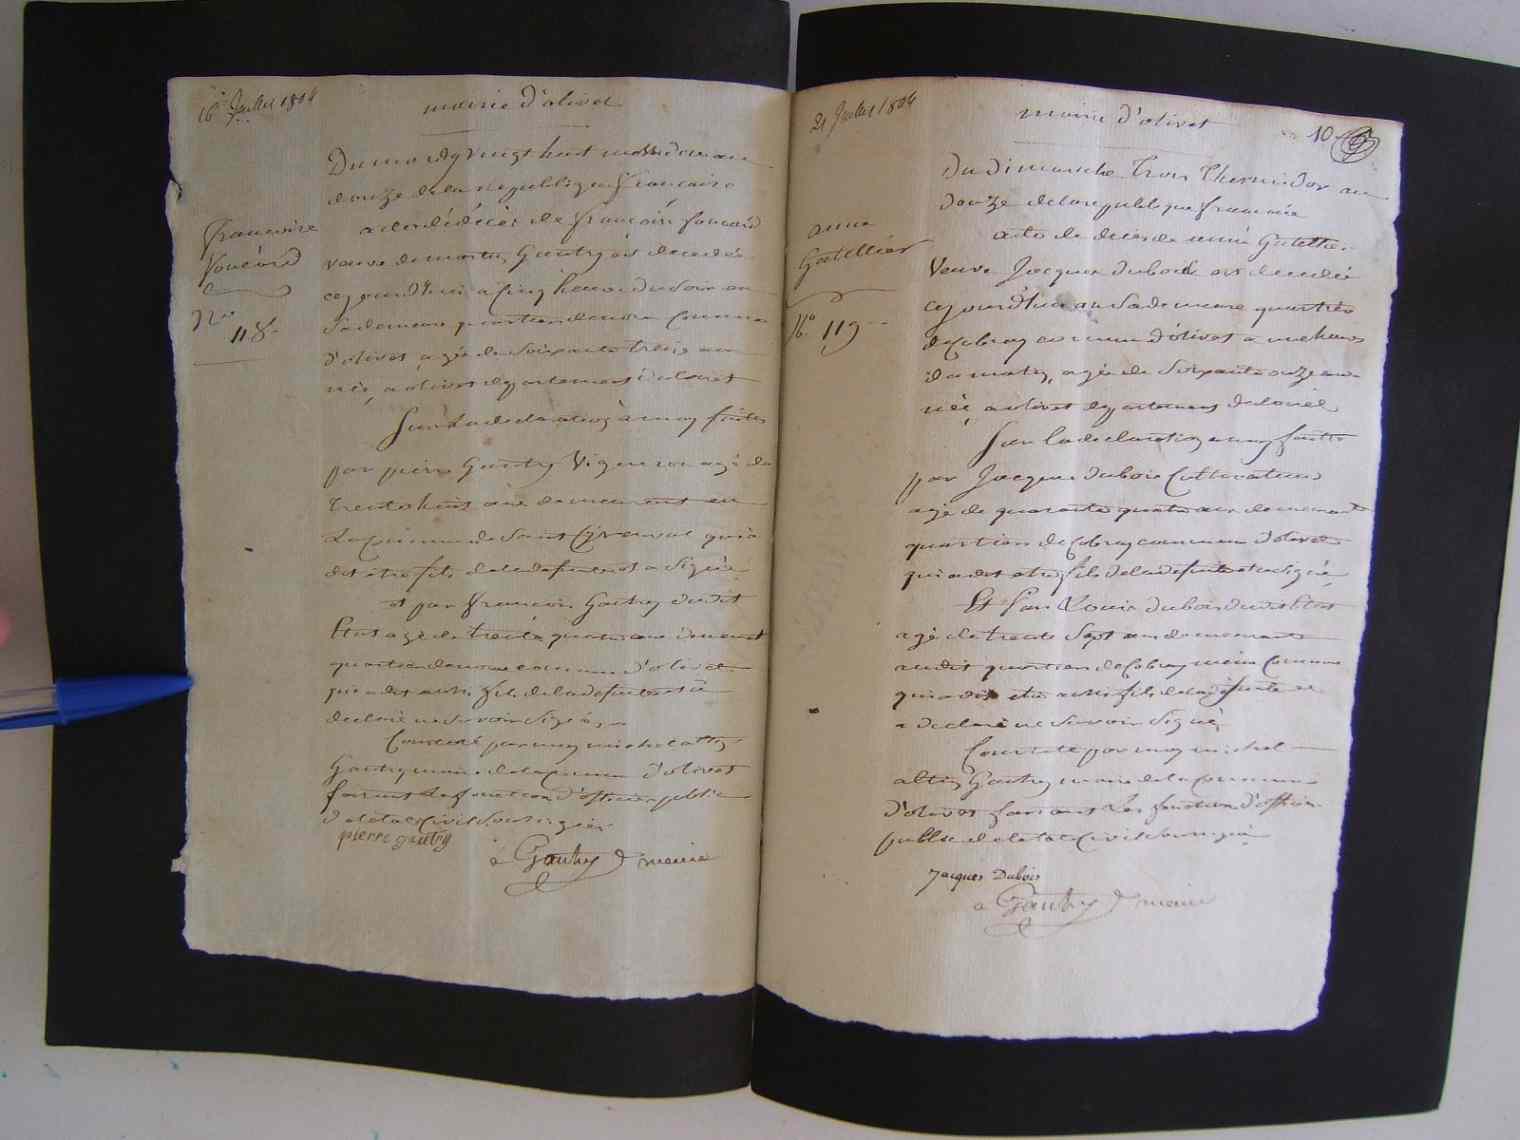 16 Juillet 1804
mairie d'olivet
Du mardy vingt huit messidor an
douze de la republique francaise
acte de décès de francoise foucard
veuve de martin Gautry decedée
cejourdhui a cinq heure du soir en
sa demeure quartier commune
d'olivet agée de soixante treize ans
née a olivet departement du loiret
francoise
foucard
No
118
Sur la declaration à moy faites
par pierre Gautry Vigneron agé de
trente huit ans demeurant en
la commune de Saint qui a
dit être fils de la defunte et a signé
et par francois Gautry dudit
Etat agé de trente quatre ans demeurant
quartier commune d'olivet
qui a dit aussi fils de la defunte et a
declaré ne savoir signé
Constaté par moy michel
Gautry maire de la commune d'olivet
faisant les fonction d'officier public
de l'etat Civil soussigné
pierre gautry
Gautry maire
21 Juillet 1804
mairie d'olivet
10
du dimanche trois thermidor an
douze de la republique francaise
acte de deces de anne Gatellier
Veuve Jacque dubois decedée
cejourdhui en sa demeure quartier
de Cobray commune d'olivet a heures
du matin, agée de soixante onze ans
née a olivet departement du loiret
anne
Gatellier
No 119
Sur la declaration a moy faitte
par Jacque dubois Cultivateur
agé de quarante quatre ans demeurant
quartier de Cobray commune d'olivet
qui a dit etre fils de la defunte et a signé
Et par Louis dubois dudit Etat
agé de trente sept ans demeurant
audit quartier de Cobray même Commune
qui a dit etre aussi fils de la defunte et
a declaré ne savoir signé
Constaté par moy michel
Gautry maire de la Commune
d'olivet faisant les fonction d'officier
public de l'etat Civil soussigné
Jacques Dubois
Gautry maire